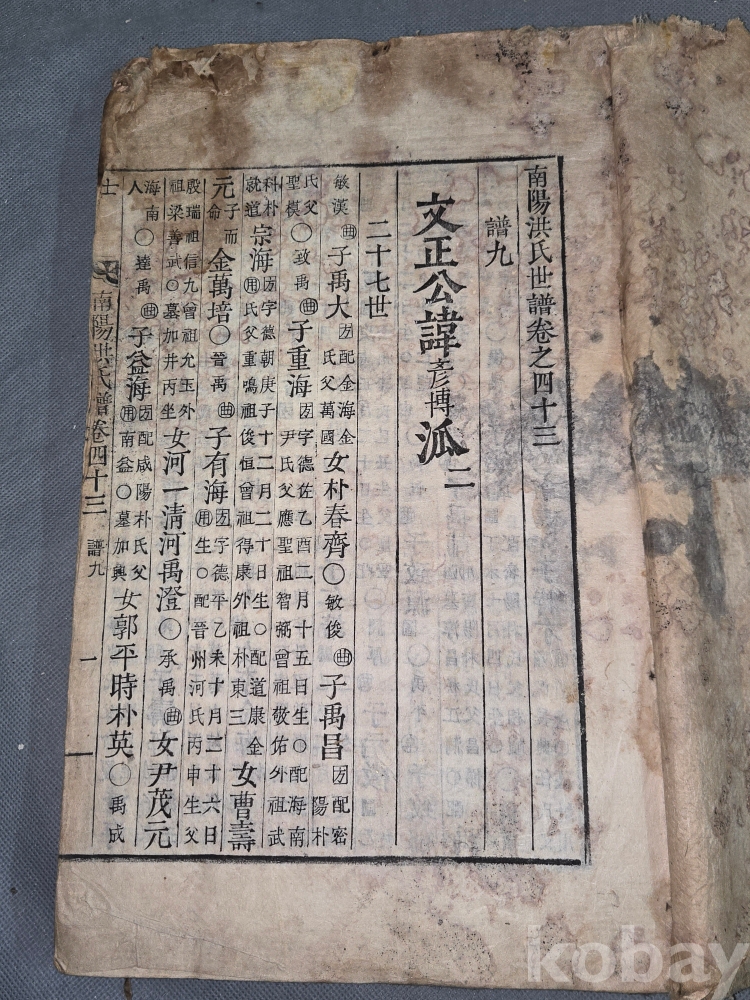 南陽洪氏世譜卷之四十三
譜九
文正公諱彥博派二
二十七世
敏漢 曲 子禹大 方配金海金氏父萬國 女朴春齊 〇敏俊 曲 子禹昌 方配密陽朴
氏父聖模 〇致禹 曲 子重海 方字德佐乙酉二月十五日生〇配海南尹氏父應聖祖智 曾祖敬佑外祖武
科朴就道 宗海 用字德朝庚子十二月二十日生〇配道康金氏父重鳴祖俊恒曾祖得康外祖朴東三 女曹壽
元 子而命 金萬培 〇晉禹 曲 子有海 方用字德平乙未十月二十六日生〇配晉州河氏丙申生父
殷瑞祖信九曾祖允玉外祖梁善武〇墓加井丙坐 女河一清河禹澄 〇承禹 曲 女尹茂元
海南人 〇達禹 曲 子益海 方用配咸陽朴氏父南益〇墓加興 女郭平時朴英 〇禹成
南陽洪氏譜卷四十三 譜九 一
kobay